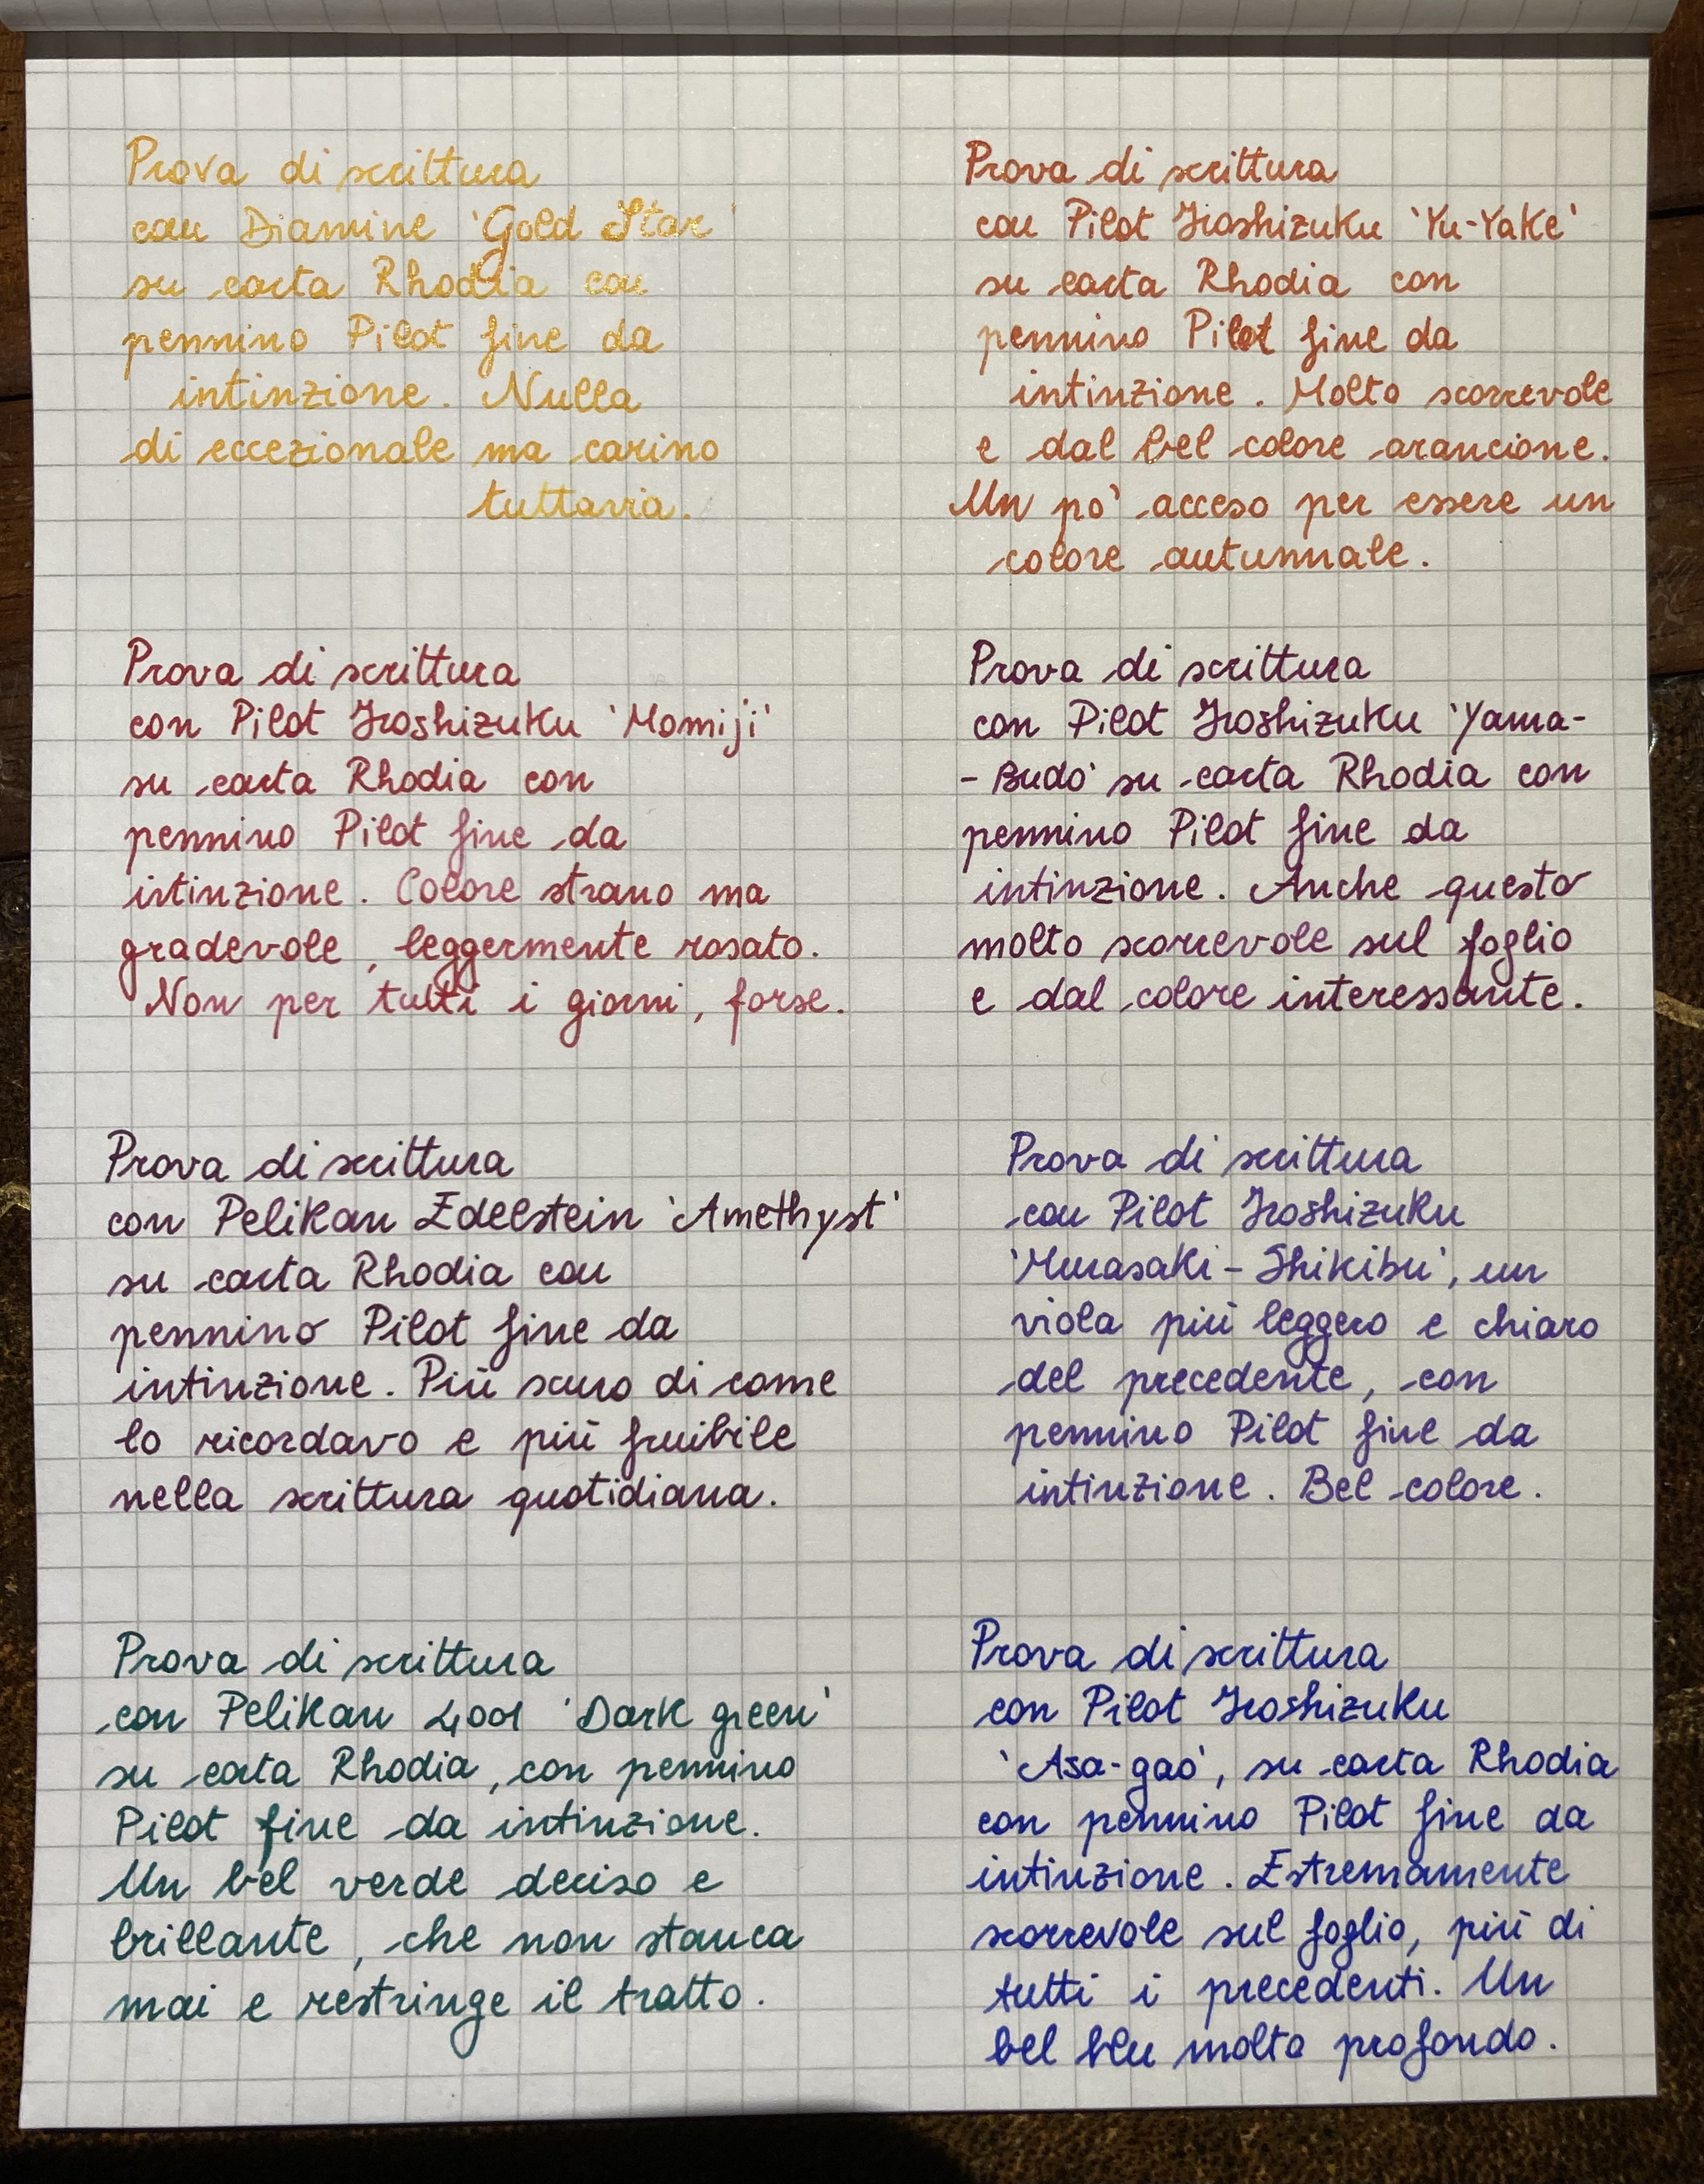 Prova di scrittura
con Diamine 'Gold Star'
su carta Rhodia con
pennino Pilot fine da
intinzione. Nulla
di eccezionale ma carino
tuttavia.
Prova di scrittura
con Pilot Iroshizuku 'Yu-Yake'
su carta Rhodia con
pennino Pilot fine da
intinzione. Molto scorrevole
e dal bel colore arancione.
Un pò acceso per essere un
colore autunnale.
Prova di scrittura
con Pilot Iroshizuku 'Momiji'
su carta Rhodia con
pennino Pilot fine da
intinzione. Colore strano ma
gradevole, leggermente rosato.
Non per tutti i giorni, forse.
Prova di scrittura
con Pilot Iroshizuku 'Yama-
-Budo' su carta Rhodia con
pennino Pilot fine da
intinzione. Anche questo
molto scorrevole sul foglio
e dal colore interessante.
Prova di scrittura
con Pelikan Edelstein 'Amethyst'
su carta Rhodia con
pennino Pilot fine da
intinzione. Più scuro di come
lo ricordavo e più fruibile
nella scrittura quotidiana.
Prova di scrittura
con Pilot Iroshizuku
'Murasaki-Shikibu', un
viola più leggero e chiaro
del precedente, con
pennino Pilot fine da
intinzione. Bel colore.
Prova di scrittura
con Pelikan 4001 'Dark green'
su carta Rhodia, con pennino
Pilot fine da intinzione.
Un bel verde deciso e
brillante, che non stanca
mai e restringe il tratto.
Prova di scrittura
con Pilot Iroshizuku
'Asa-gao', su carta Rhodia
con pennino Pilot fine da
intinzione. Estremamente
scorrevole sul foglio, più di
tutti i precedenti. Un
bel blu molto profondo.